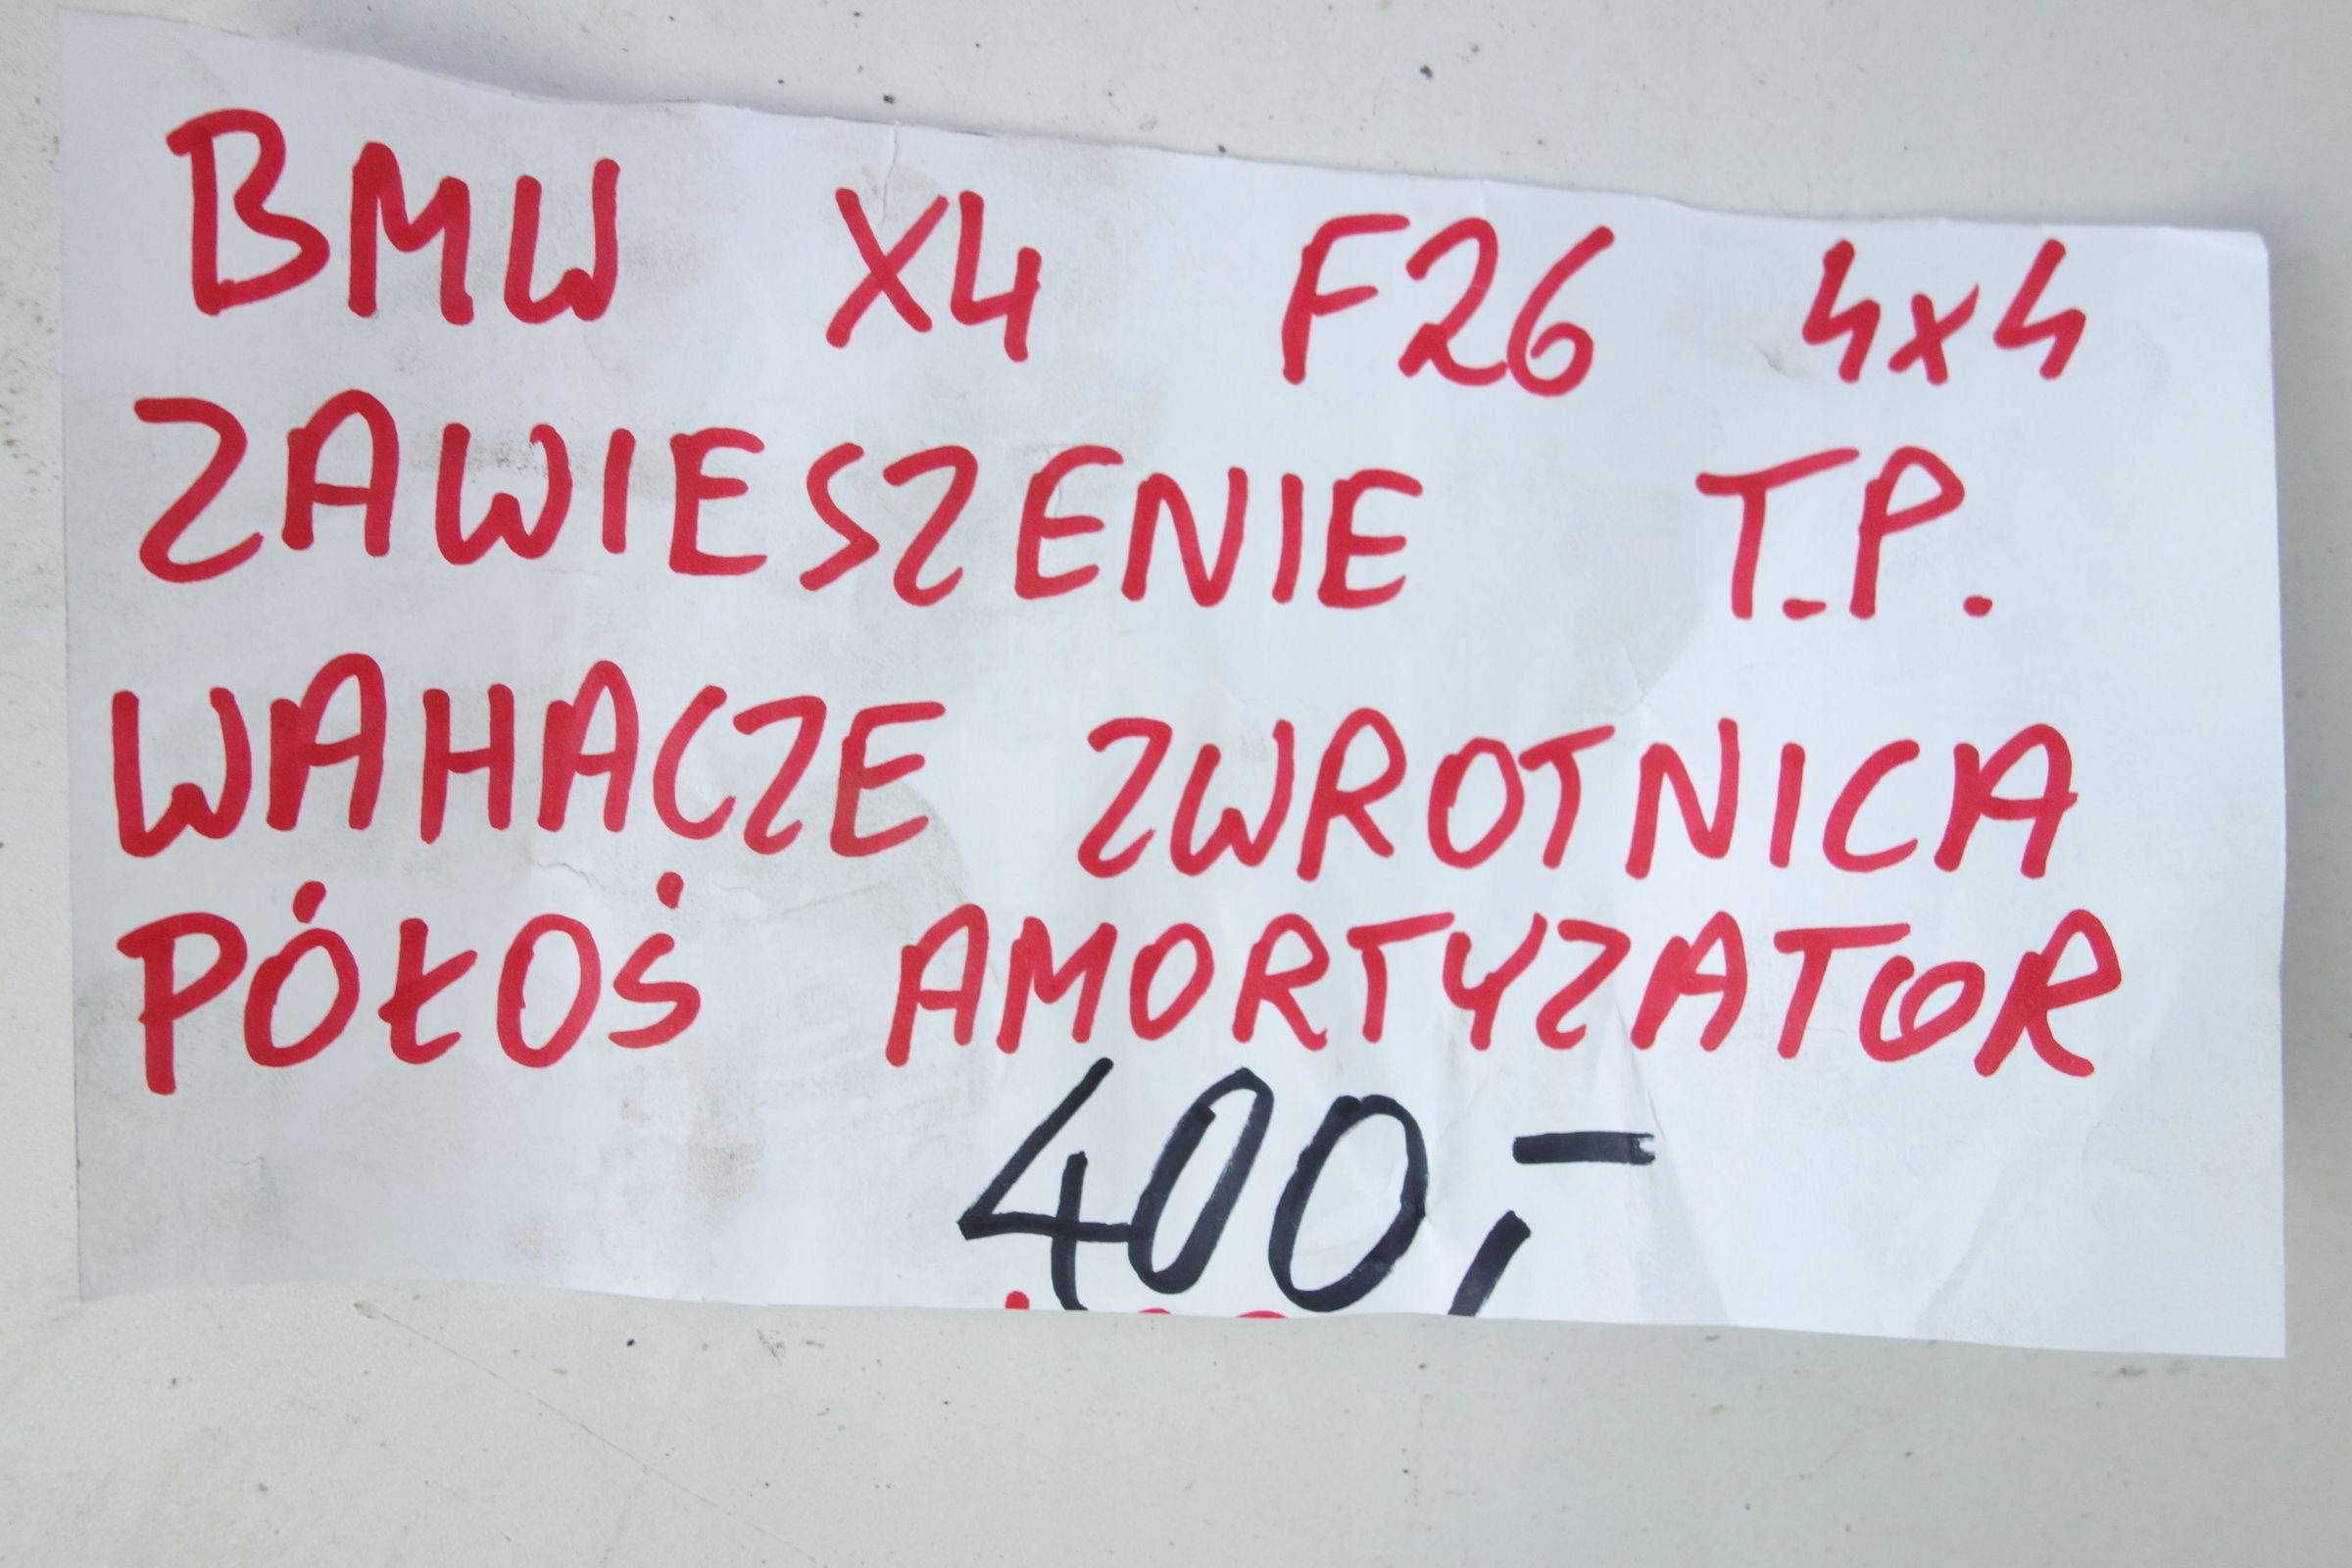 BMW X4 F26 4x4
ZAWIESZENIE T.P.
WAHACZE ZWROTNICA
PÓŁOŚ AMORTYZATOR
400,-